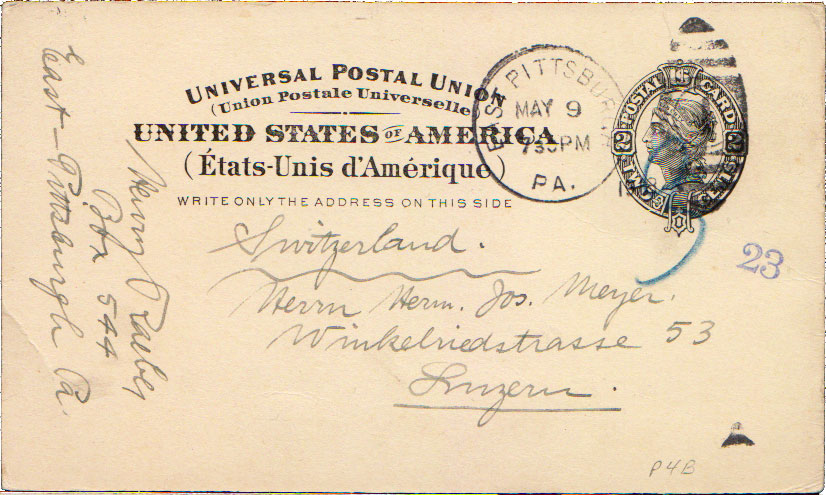 UNIVERSAL POSTAL UNION
(Union Postale Universelle)
UNITED STATES OF AMERICA
(États-Unis d'Amérique)
WRITE ONLY THE ADDRESS ON THIS SIDE
EAST PITTSBURGH
MAY 9
730PM
PA.
U.S. POSTAL CARD
2 2
Switzerland.
Herrn Herm. Jos. Meyer.
Winkelriedstrasse 53
Luzern.
23
P4B
Henry
Box 544
East-Pittsburgh Pa.